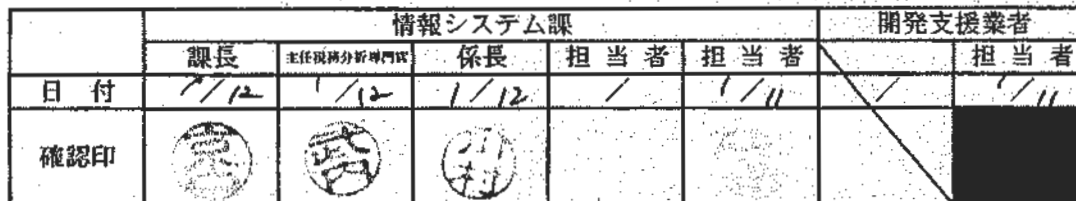 情報システム課 開発支援業者
課長 主任視務分析専門官 係長 担当者 担当者 担当者
日付 1/12 1/12 1/12 / 1/11 / 1/11
確認印 武内 川村